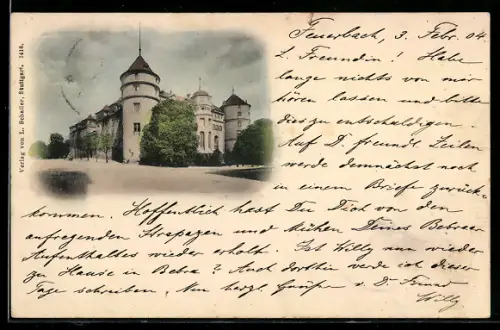 Verlag von L. Schaller, Stuttgart. 1418.
Feuerbach, 3. Febr. 04
L. Freundin! Habe
lange nichts von mir
hören lassen und bitte
dies zu entschuldigen.
Auf D. freundl. Zeilen
werde demnächst noch
in einem Briefe zurück-
kommen. Hoffentlich hast Du Dich von den
aufregenden Strapazen und Küchen Deines
Aufenthaltes wieder erholt. Ist Willy nun wieder
zu Hause in Bebra? Auch dorthin werde ich dieser
Tage schreiben. Nun herzl. Grüße v. D. Freund
Willy